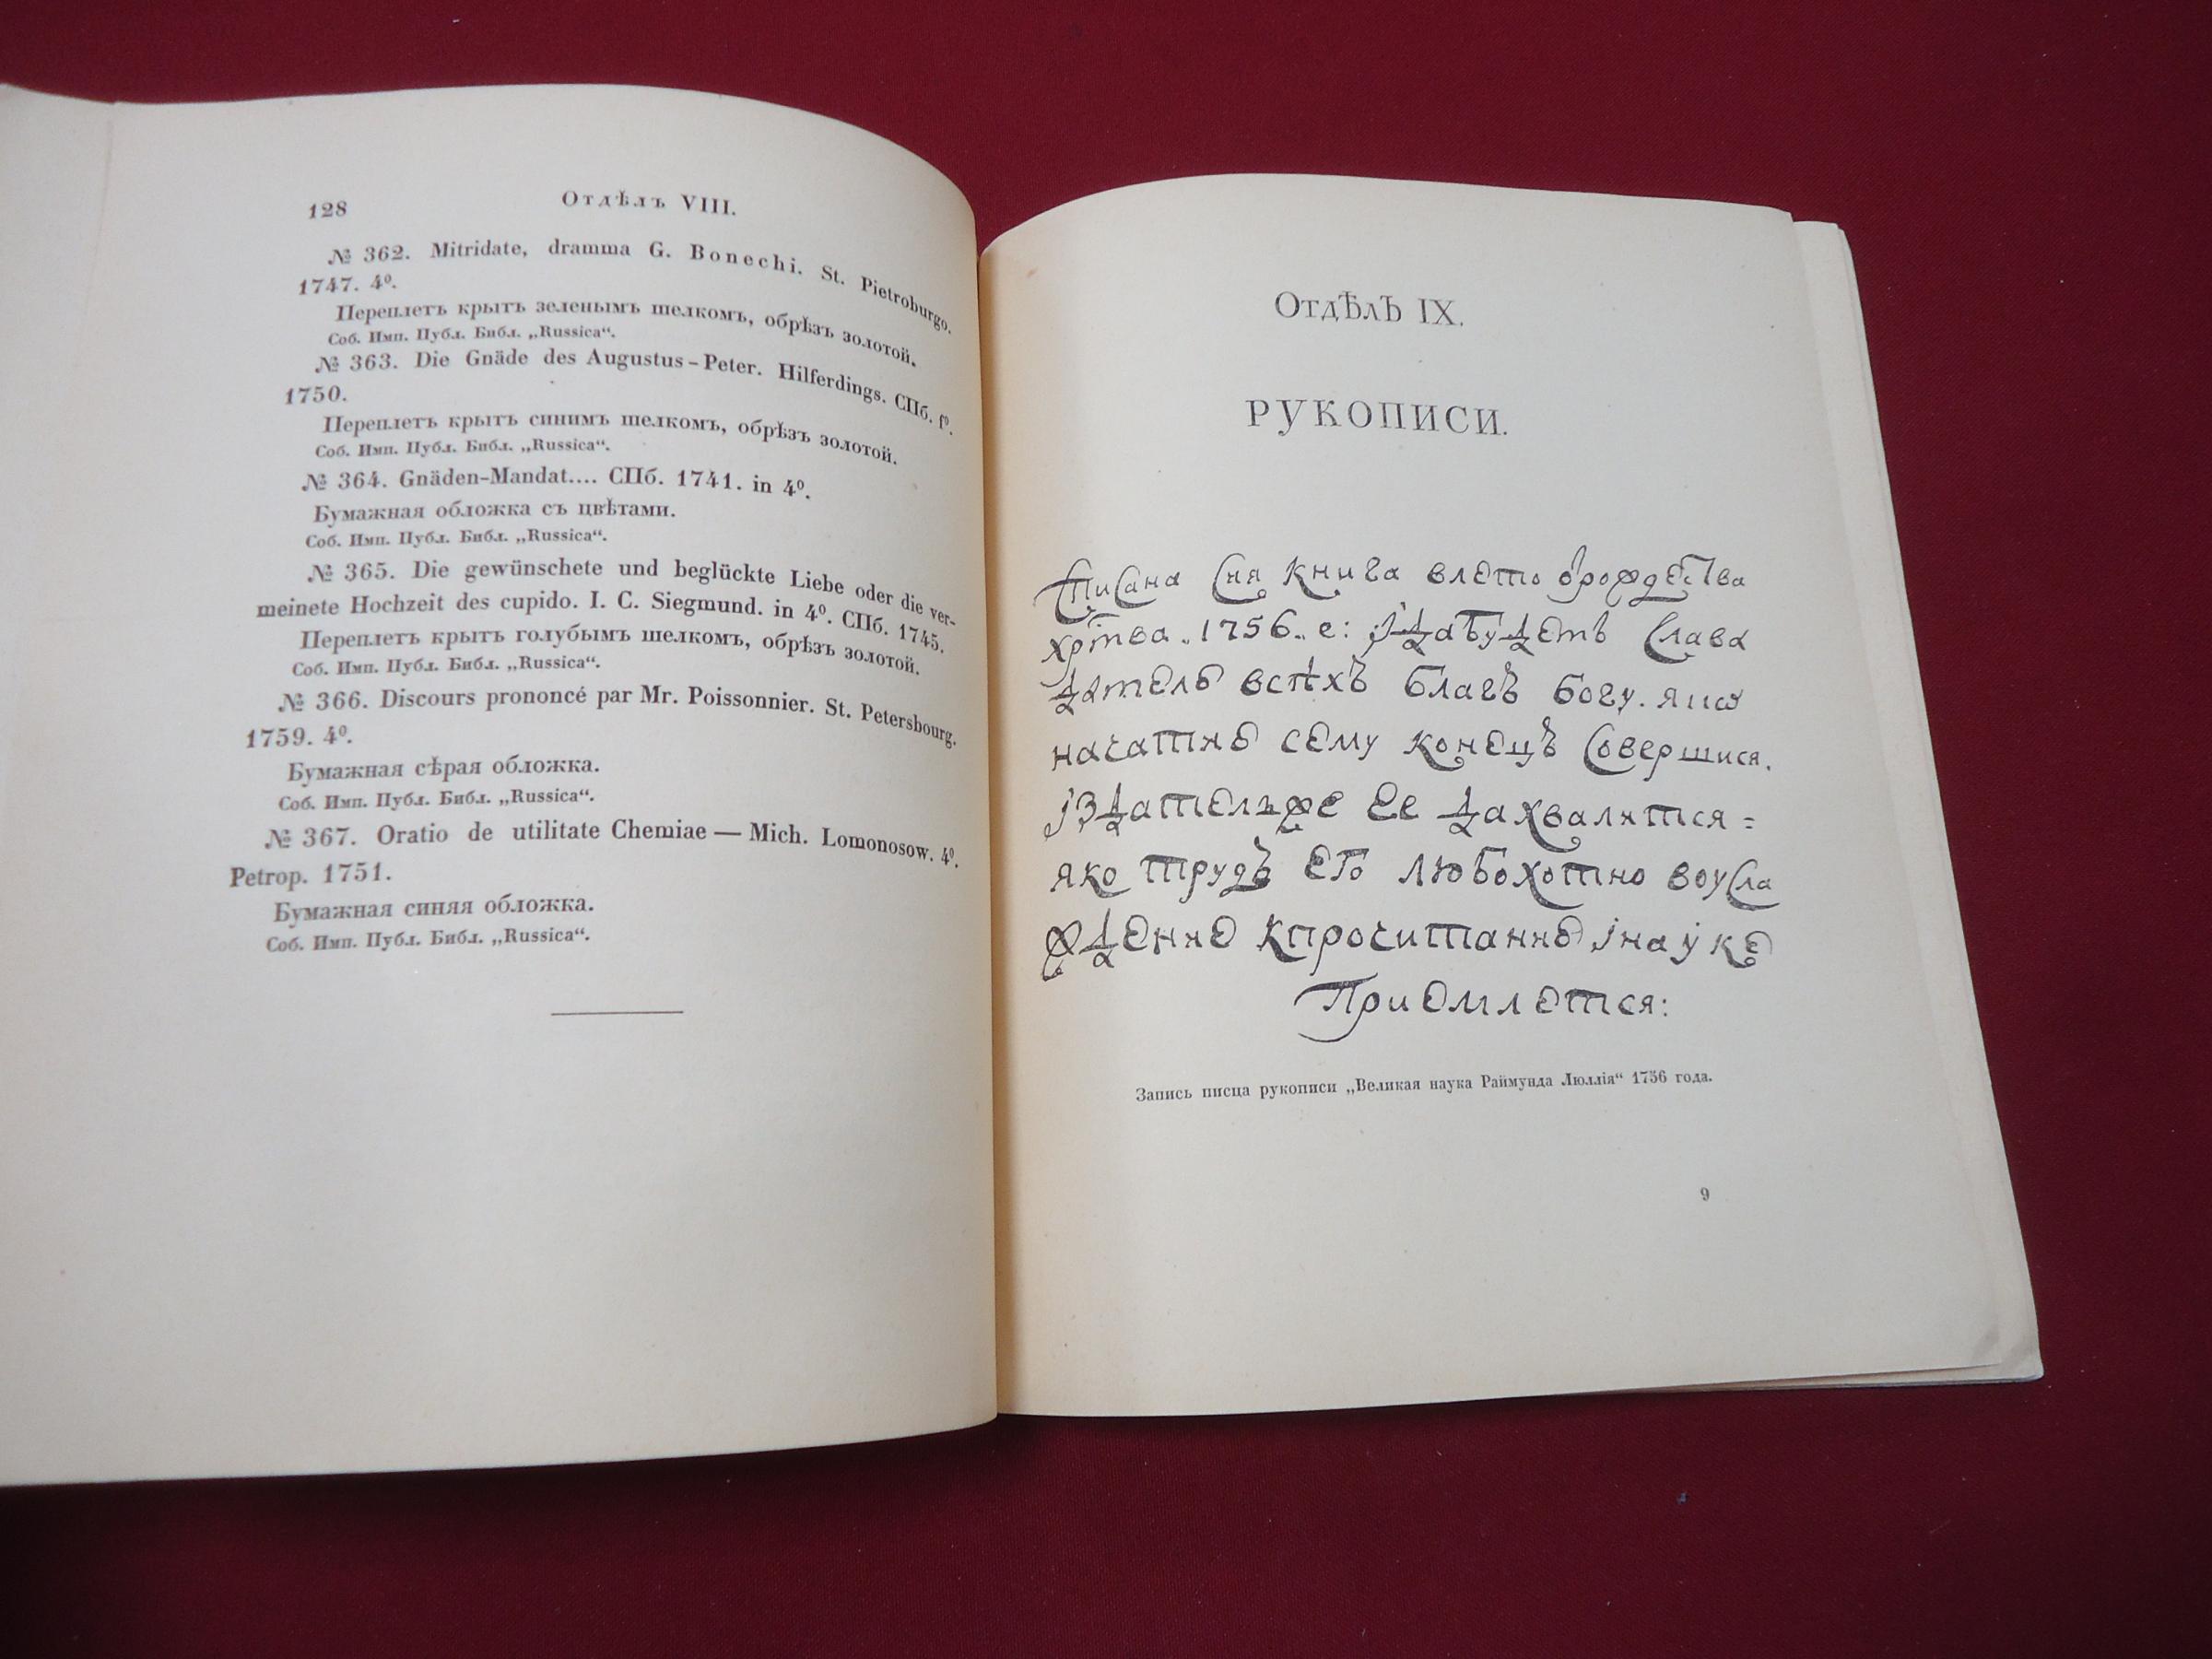 128
Отдѣлъ VIII.
№ 362. Mitridate, dramma G. Bonechi. St. Pietroburgo.
1747. 4⁰.
Переплетъ крытъ зеленымъ шелкомъ, обрѣзъ золотой.
Соб. Имп. Публ. Библ. „Russica“.
№ 363. Die Gnäde des Augustus-Peter. Hilferdings. СПб. f⁰.
1750.
Переплетъ крытъ синимъ шелкомъ, обрѣзъ золотой.
Соб. Имп. Публ. Библ. „Russica“.
№ 364. Gnäden-Mandat.... СПб. 1741. in 4⁰.
Бумажная обложка съ цвѣтами.
Соб. Имп. Публ. Библ. „Russica“.
№ 365. Die gewünschete und beglückte Liebe oder die ver-
meinete Hochzeit des cupido. I. C. Siegmund. in 4⁰. СПб. 1745.
Переплетъ крытъ голубымъ шелкомъ, обрѣзъ золотой.
Соб. Имп. Публ. Библ. „Russica“.
№ 366. Discours prononcé par Mr. Poissonnier. St. Petersbourg.
1759. 4⁰.
Бумажная сѣрая обложка.
Соб. Имп. Публ. Библ. „Russica“.
№ 367. Oratio de utilitate Chemiae — Mich. Lomonosow. 4⁰.
Petrop. 1751.
Бумажная синяя обложка.
Соб. Имп. Публ. Библ. „Russica“.
Отдѣлъ IX.
РУКОПИСИ.
Писана сия книга влето ѿрождества
хртва .. 1756 .. е: ιдабудетъ слава
дателю всѣхъ благъ богу. яко
началу сему конецъ совершися.
ιздательже ее дахвалится =
яко трудъ его любохотно воусла
ждение кпрочитанию ιнауке
приемлется:
Запись писца рукописи „Великая наука Раймунда Люллія“ 1756 года.
9